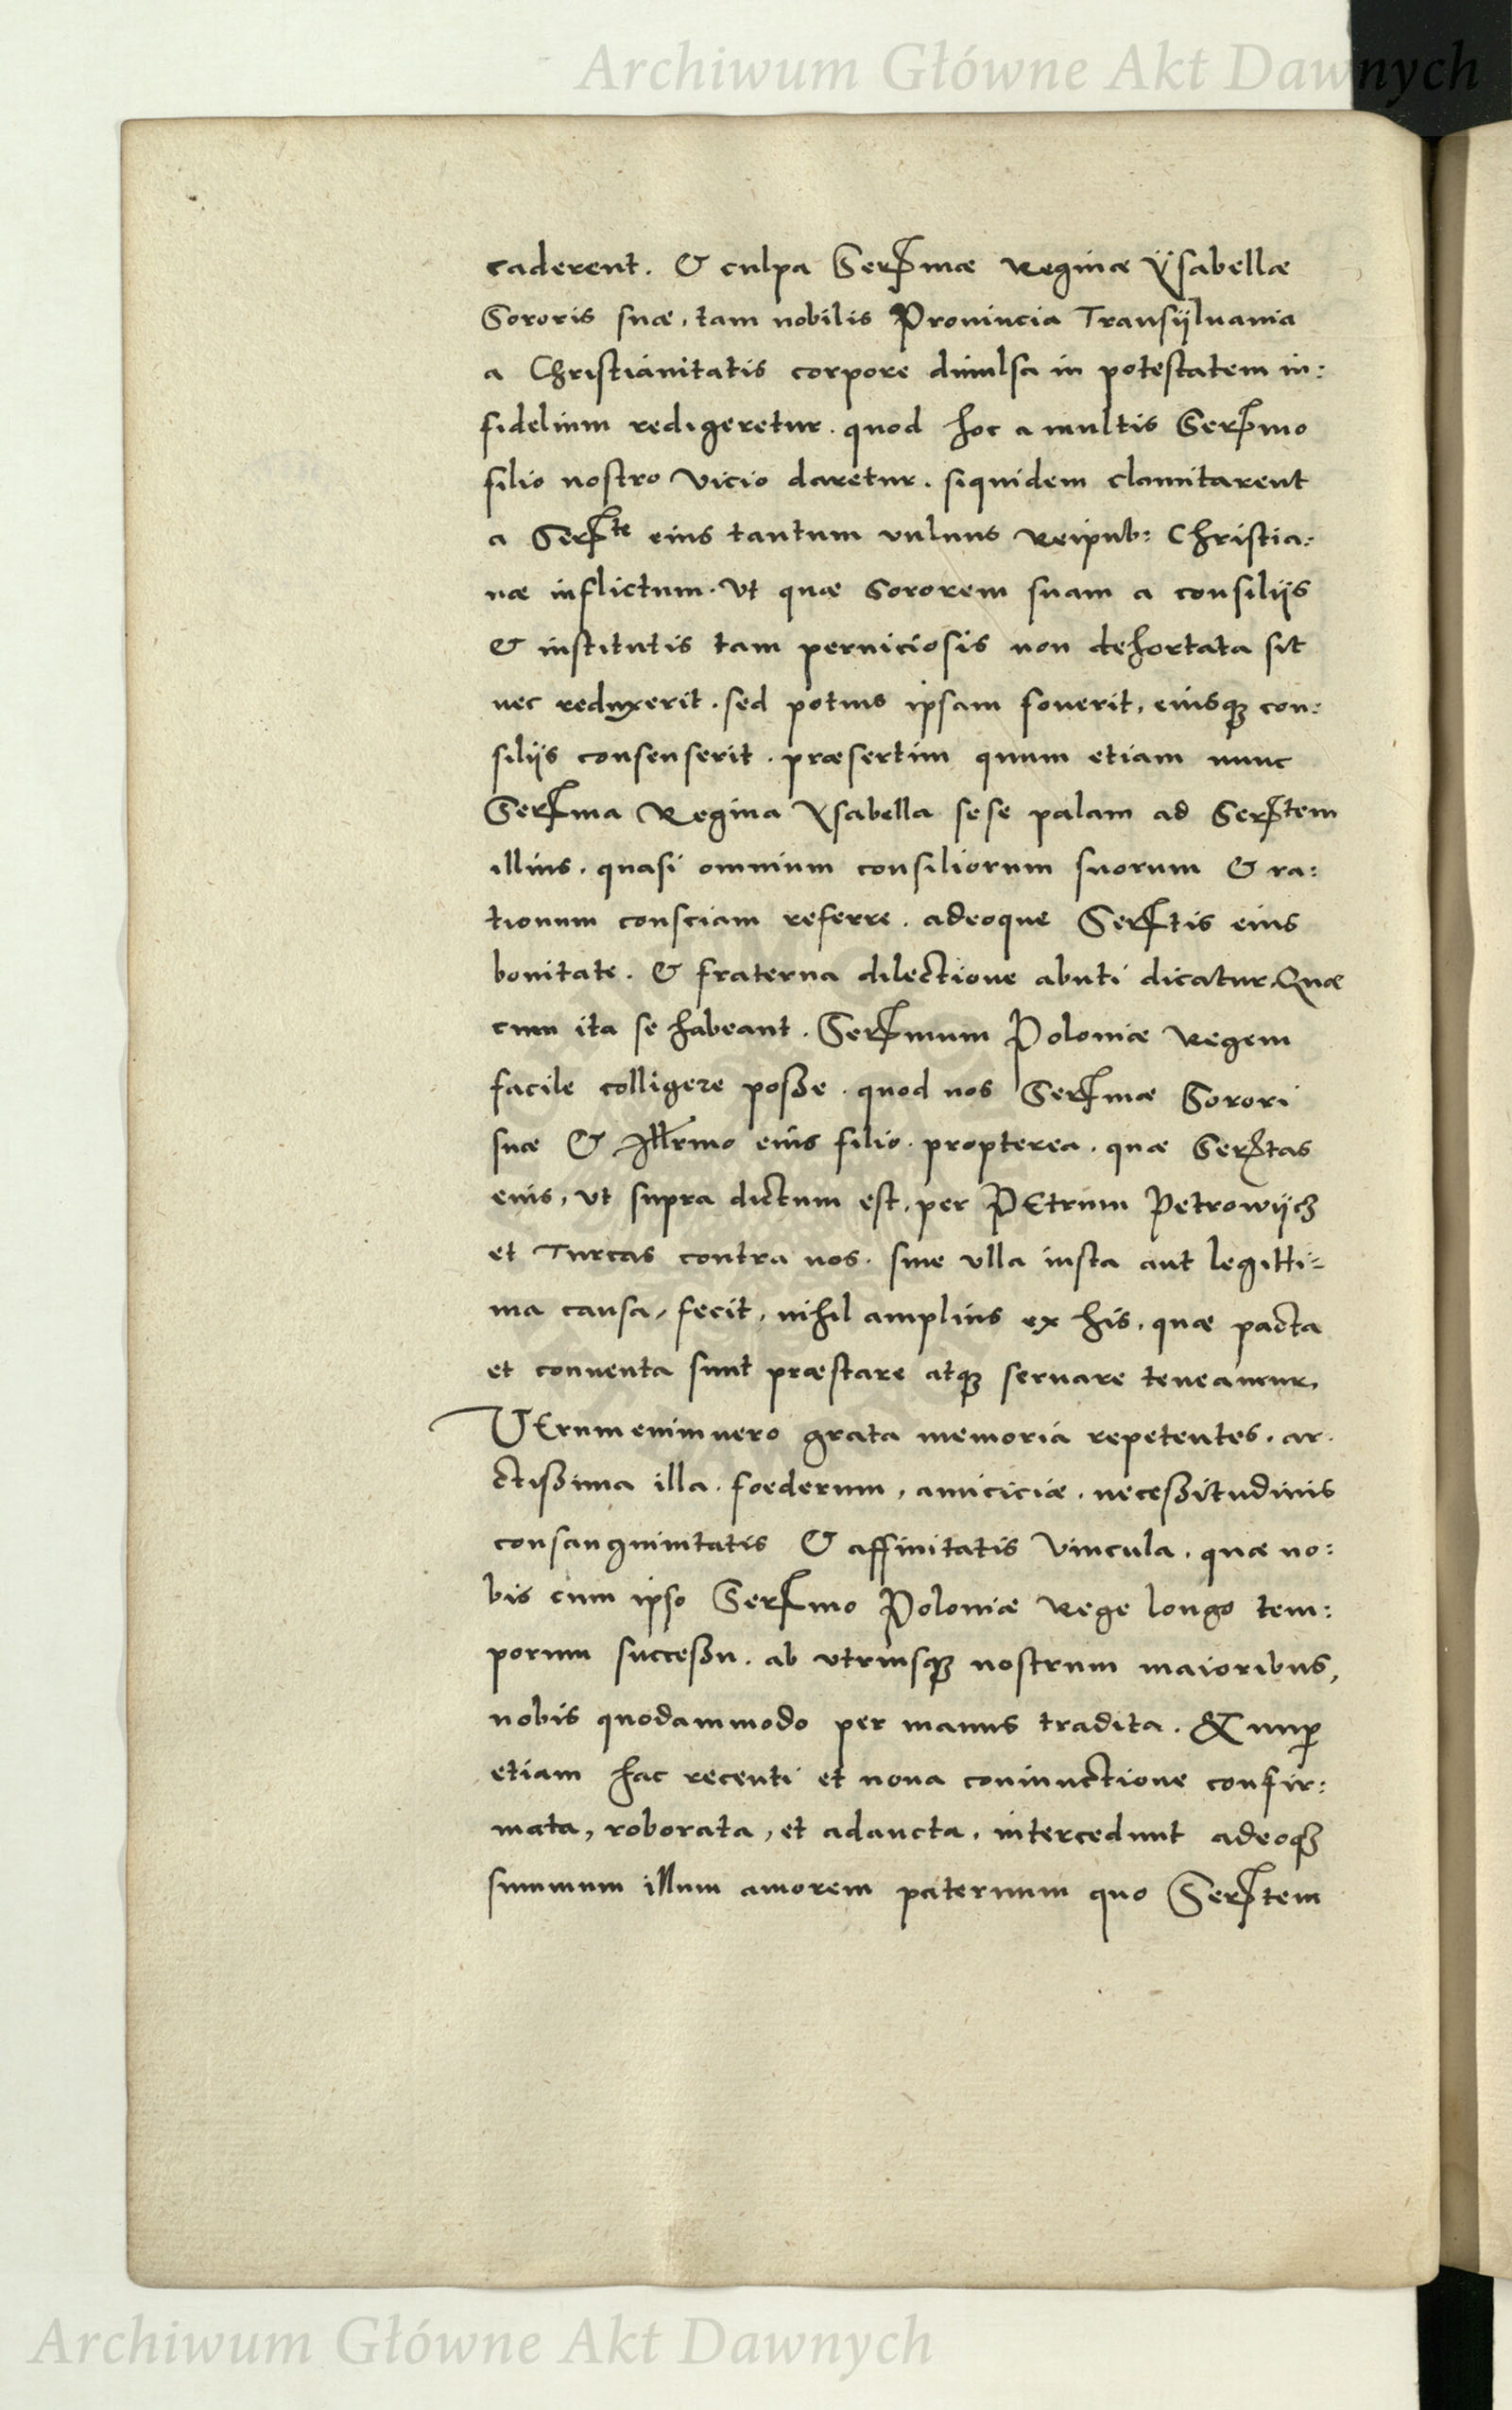 Archiwum Główne Akt Dawnych
caderent. & culpa Serꝭmæ Reginæ Ÿsabellæ
Sororis suæ, tam nobilis Prouincia Transijluania
a Christianitatis corpore diuulsa in potestatem in:
fidelium redigeretur. quod hoc a multis Serꝭmo
filio nostro vicio daretur. siquidem clamitarent
a Serꝭte eius tantum vulnus Reipub: Christia:
næ inflictum. Vt quæ Sororem suam a consilijs
& institutis tam perniciosis non dehortata sit
nec reduxerit. sed potius ipsam fouerit, eiusqꝫ con:
silijs consenserit. præsertim quum etiam nunc
Serꝭma Regina Ysabella sese palam ad Serꝭtem
illius. quasi omnium consiliorum suorum & ra:
tionum consciam referre. adeoque Serꝭtis eius
bonitate. & fraterna dilectione abuti dicatur. Quæ
cum ita se habeant. Serꝭmum Poloniæ Regem
facile colligere posse. quod nos Serꝭmæ Sorori
suæ & Illrmo eius filio. propterea. quæ Serꝭtas
eius, vt supra dictum est, per PEtrum Petrowijch
et Turcas contra nos. sine vlla iusta aut legitti-
ma causa, fecit, nihil amplius ex his, quæ pacta
et conuenta sunt præstare atqꝫ seruare teneamur.
VErumenimuero grata memoria repetentes. ar.
ctissima illa. foederum, amiciciæ. necessitudinis
consanguinitatis & affinitatis vincula. quæ no:
bis cum ipso Serꝭmo Poloniæ Rege longo tem:
porum successu. ab vtriusqꝫ nostrum maioribus,
nobis quodammodo per manus tradita. & nuꝑ
etiam hac recenti et noua coniunctione confir:
mata, roborata, et adaucta, intercedunt adeoqꝫ
summum illum amorem paternum quo Serꝭtem
Archiwum Główne Akt Dawnych